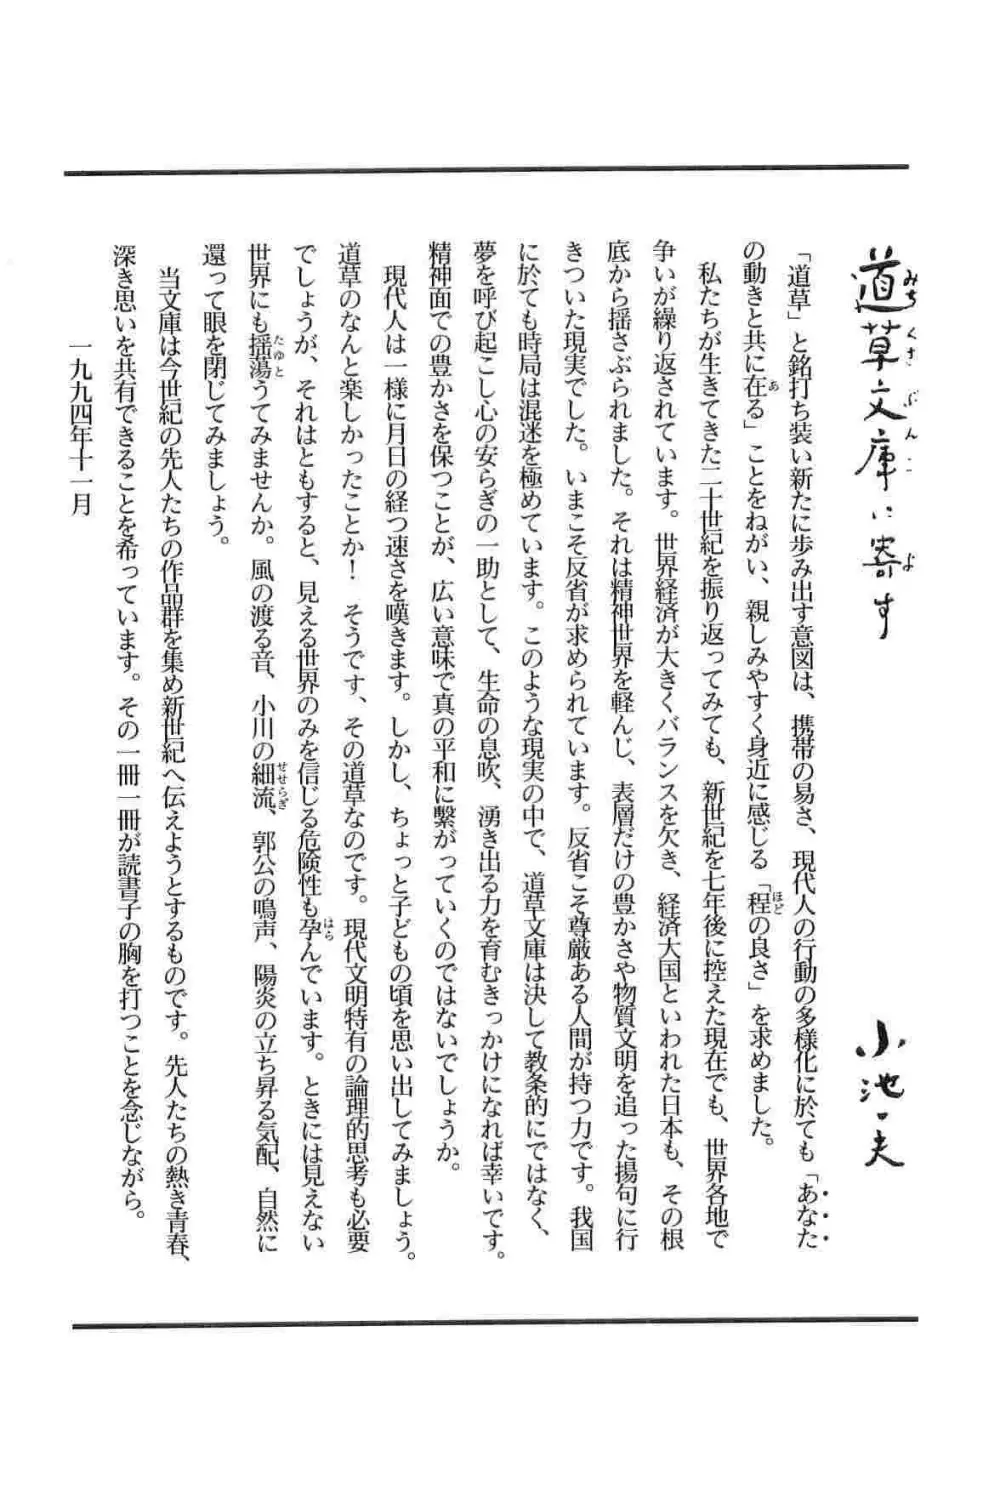 道草文庫に寄す
みちくさぶんこ
よ
小池一夫
「道草」と銘打ち装い新たに歩み出す意図は、携帯の易さ、現代人の行動の多様化に於ても「あなた
の動きと共に在る」ことをねがい、親しみやすく身近に感じる「程の良さ」を求めました。
あ
ほど
私たちが生きてきた二十世紀を振り返ってみても、新世紀を七年後に控えた現在でも、世界各地で
争いが繰り返されています。世界経済が大きくバランスを欠き、経済大国といわれた日本も、その根
底から揺さぶられました。それは精神世界を軽んじ、表層だけの豊かさや物質文明を追った揚句に行
きついた現実でした。いまこそ反省が求められています。反省こそ尊厳ある人間が持つ力です。我国
に於ても時局は混迷を極めています。このような現実の中で、道草文庫は決して教条的にではなく、
夢を呼び起こし心の安らぎの一助として、生命の息吹、湧き出る力を育むきっかけになれば幸いです。
精神面での豊かさを保つことが、広い意味で真の平和に繋がっていくのではないでしょうか。
現代人は一様に月日の経つ速さを嘆きます。しかし、ちょっと子どもの頃を思い出してみましょう。
道草のなんと楽しかったことか！ そうです、その道草なのです。現代文明特有の論理的思考も必要
でしょうが、それはともすると、見える世界のみを信じる危険性も孕んでいます。ときには見えない
はら
世界にも揺蕩うてみませんか。風の渡る音、小川の細流、郭公の鳴声、陽炎の立ち昇る気配、自然に
たゆと
せせらぎ
還って眼を閉じてみましょう。
当文庫は今世紀の先人たちの作品群を集め新世紀へ伝えようとするものです。先人たちの熱き青春、
深き思いを共有できることを希っています。その一冊一冊が読書子の胸を打つことを念じながら。
一九九四年十一月